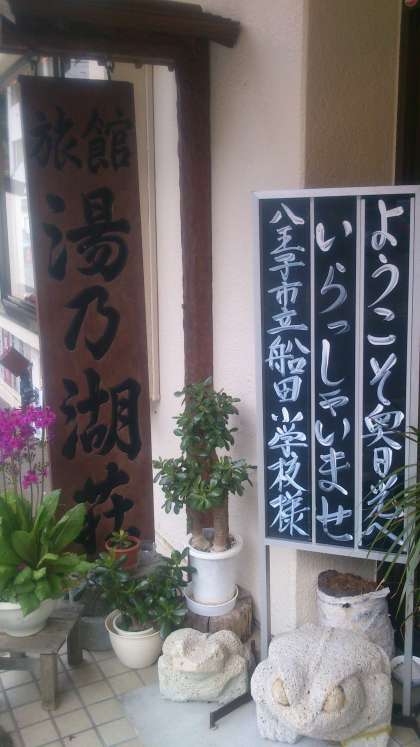 旅館
湯乃湖荘
ようこそ奥日光へ
いらっしゃいませ
八王子市立船田小学校様